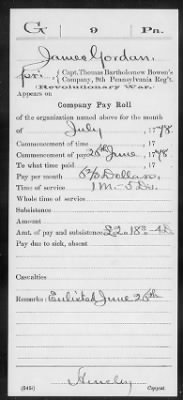 G 9 Pa.
James Gordan,
Pri., Capt. Thomas Bartholomew Bowen's
Company, 9th Pennsylvania Reg't.
(Revolutionary War.)
Appears on
Company Pay Roll
of the organization named above for the month
of July, 1778.
Commencement of time , 17
Commencement of pay 26th June, 1778.
To what time paid , 17
Pay per month 6⅔ Dollars,
Time of service 1 M. - 5 Ds.
Whole time of service
Subsistance
Amount
Amt. of pay and subsistence £2. 18s. 4d.
Pay due to sick, absent
Casualties
Remarks: Enlisted June 26th
(545)
Copyist.